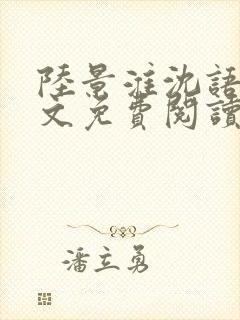 陸景淮沈語
文免費閱讀
潘立勇